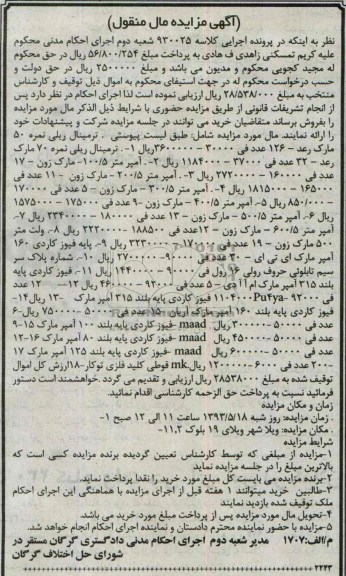 (آگهی مزایده مال منقول)
نظر به اینکه در پرونده اجرایی کلاسه ۹۳۰۰۲۵ شعبه دوم اجرای احکام مدنی محکوم
علیه کریم تمسکنی زاهدی ف هادی به پرداخت مبلغ ۵۶/۸۰۰/۲۵۴ ریال در حق محکوم
له مجید کجویی محکوم و مدیون می باشد و مبلغ ۲۵۰۰۰۰۰ ریال در حق دولت و
حسب درخواست محکوم له در جهت استیفای محکوم به اموال ذیل توقیف و کارشناس
منتخب به مبلغ ۲۸/۵۳۸/۰۰۰ ریال ارزیابی نموده است لذا اجرای احکام در نظر دارد پس
از انجام تشریفات قانونی از طریق مزایده حضوری با شرایط ذیل الذکر مال مورد مزایده
را بفروش برساند متقاضیان خرید می توانند در جلسه مزایده شرکت و پیشنهادات خود
را ارائه نمایند. مال مورد مزایده شامل: طبق لیست پیوستی . ترمینال ریلی نمره ۵۰
مارک رعد – ۱۲۶ عدد فی ۳۰۰۰۰ – ۳۶۰۰۰۰۰ ریال ۱- . ترمینال ریلی نمره ۷۰ مارک
رعد – ۳۲ عدد فی ۳۷۰۰۰ – ۱۱۸۴۰۰۰ ریال ۲-. آمپر متر ۱۰۰/۵ - مارک زون – ۱۷
عدد فی ۱۶۰۰۰۰ – ۲۷۲۰۰۰۰ ریال ۳-. آمپر متر ۲۰۰/۵ – مارک زون – ۱۱ عدد فی
۱۶۵۰۰۰ – ۱۸۱۵۰۰۰ ریال ۴- . آمپر متر ۳۰۰/۵ – مارک زون – ۵ عدد فی ۱۷۰۰۰۰
– ۸۵۰/۰۰۰ ریال ۵-. آمپر متر ۴۰۰/۵ – مارک زون – ۹ عدد فی ۱۷۵۰۰۰ – ۱۵۷۵۰۰۰
ریال ۶-. آمپر متر ۵۰۰/۵ – مارک زون – ۱۳ عدد فی ۱۸۰۰۰۰ – ۲۳۴۰۰۰۰ ریال ۷-.
آمپر متر ۶۰۰/۵ – مارک زون – ۱۲ عدد فی ۱۸۸۵۰۰ – ۲۲۲۰۰۰۰ ریال ۸-. ولت متر
۵۰۰ مارک زون – ۱۹ عدد فی ۱۷۰۰۰۰ – ۳۲۳۰۰۰۰ ریال ۹-. پایه فیوز کاردی ۱۶۰
آمپر مارک ای تی ای – ۳۰ عدد فی ۹۰۰۰۰ – ۲۷۰۰۰۰۰ ریال ۱۰-. شماره پلاک سر
سیم تابلوئی حروف رولی ۱۶ رول فی ۹۰۰۰۰ – ۱۴۴۰۰۰۰ ریال ۱۱-. فیوز کاردی پایه
بلند ۳۱۵ آمپر مارک ام آ آ دی – ۵ عدد فی ۹۲۰۰۰ – ۴۶۰۰۰۰ ریال ۱۲- ۱۲ عدد
فی ۹۲۰۰۰ -Pu۴ya ۱۱۰۴۰۰۰ فیوز کاردی پایه بلند ۳۱۵ آمپر مارک ۱۳- ریال ۱۴-
فیوز کاردی پایه بلند ۱۶۰ آمپر مارک آریان – ۱۵ عدد فی ۵۰۰۰۰ – ۷۵۰۰۰۰ ریال ۶-
عدد فی ۵۰۰۰۰ – ۳۰۰۰۰۰ ریال. maad فیوز کاردی پایه بلند ۱۰۰ آمپر مارک ۱۵-۹
عدد فی ۵۰۰۰۰ – ۴۵۰۰۰۰ ریال maad -فیوز کاردی پایه بلند ۸۰ آمپر مارک ۱۶-۱۲
عدد فی ۵۰۰۰۰ – ۶۰۰۰۰۰ ریال maad -فیوز کاردی پایه بلند ۱۲۵ آمپر مارک ۱۷
-۲۰۰ عدد فی ۶۰۰۰ – ۱۲۰۰۰۰۰ ریال.mk قوطی کلید فلزی توکار-۱۸ ارزش کل اموال
توقیف شده به مبلغ ۲۸۵۳۸۰۰۰ ریال ارزیابی و تقدیم می گردد .خواهشمند است دستور
فرمائید نسبت به پرداخت حق الزحمه کارشناسی اقدام نمائید.
زمان و مکان مزایده
. زمان مزایده: روز شنبه ۱۳۹۳/۵/۱۸ ساعت ۱۱ الی ۱۲ صبح ۱-
. مکان مزایده: ویلا شهر ویلای ۱۹ بلوک ۱۱،۲-
شرایط مزایده
۱-مزایده از مبلغی که توسط کارشناس تعیین گردیده برنده مزایده کسی است که
بالاترین مبلغ را در جلسه مزایده نماید
۲-برنده مزایده می بایست کل مبلغ مورد خرید را نقدا پرداخت نماید.
۳-طالبین خرید میتوانند ۱ هفته قبل از اجرای مزایده با هماهنگی این اجرای احکام
ملک توقیف شده بازدید نمایند
۴-تحویل مال مورد مزایده پس از پرداخت مبلغ مورد خرید می باشد
۵-مزایده با حضور نماینده محترم دادستان و نماینده اجرای احکام انجام خواهد شد.
م/الف:۱۷۰۷ مدیر شعبه دوم اجرای احکام مدنی دادگستری گرگان مستقر در
شورای حل اختلاف گرگان
۲۲۴۳